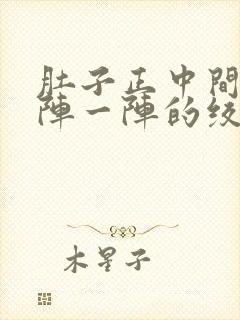 肚子正中間
陣一陣的絞
木星子